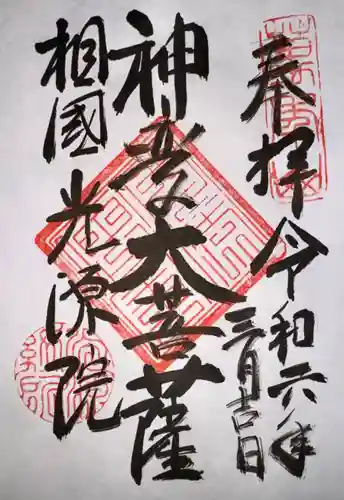 奉拝
令和六年
三月吉日
神変大菩薩
相國光源院